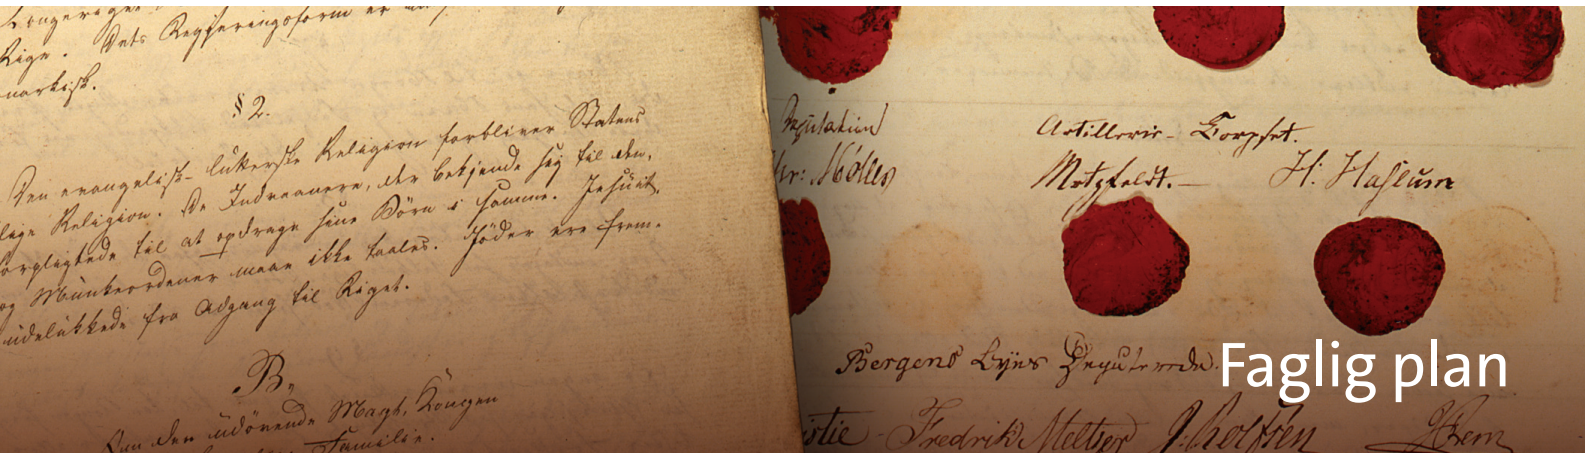 Rige. Dets Regjeringsform er
narkisk.
§ 2.
Den evangelisk-lutherske Religion forbliver Statens
lige Religion. De Indvaanere, der bekjende sig til den,
orpligtede til at opdrage sine Börn i samme. Jesuit-
og Munkeordener maae ikke taales. Jöder ere frem-
udelukkede fra Adgang til Riget.
B.
Om den udövende Magt, Kongen
Familie.
Deputation
Hr: Møller
Artillerie-Corpset.
Motzfeldt. H: Haslum
Bergens Byes Deputerede.
istie Fredrik Meltzer J: Rolfsen Irem
Faglig plan